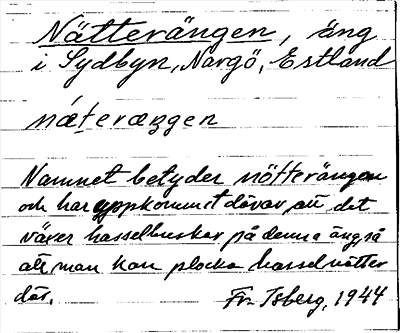 Nätterängen, äng
i Sydbyn, Nargö, Estland
næteræŋen
Namnet betyder nötterängen
och har uppkommit därav, att det
växer hasselbuskar på denna äng, så
att man kan plocka hasselnötter
där. Fr. Isberg, 1944